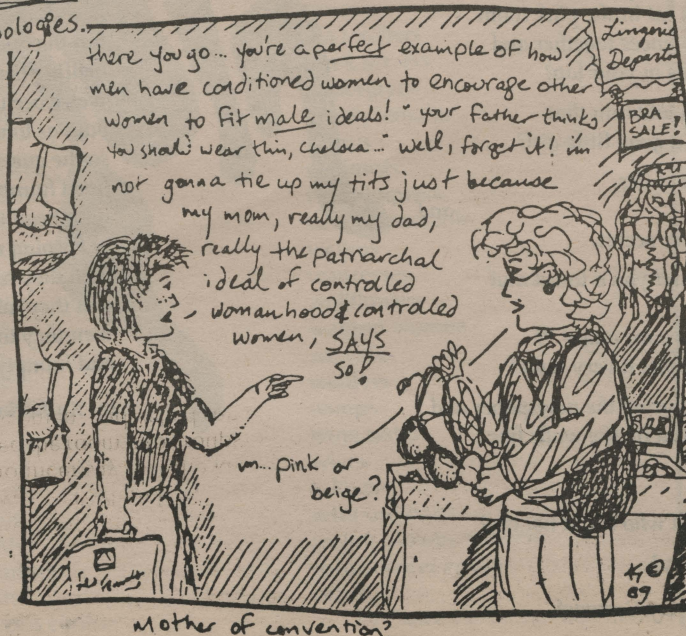 ologies.
there you go... you're a perfect example of how
men have conditioned women to encourage other
women to fit male ideals! "your father thinks
you should wear this, Chelsea..." well, forget it! i'm
not gonna tie up my tits just because
my mom, really my dad,
really the patriarchal
ideal of controlled
womanhood & controlled
women, SAYS
so!
Lingerie
Depart
BRA
SALE!
um... pink or
beige?
©
89
Mother of convention?